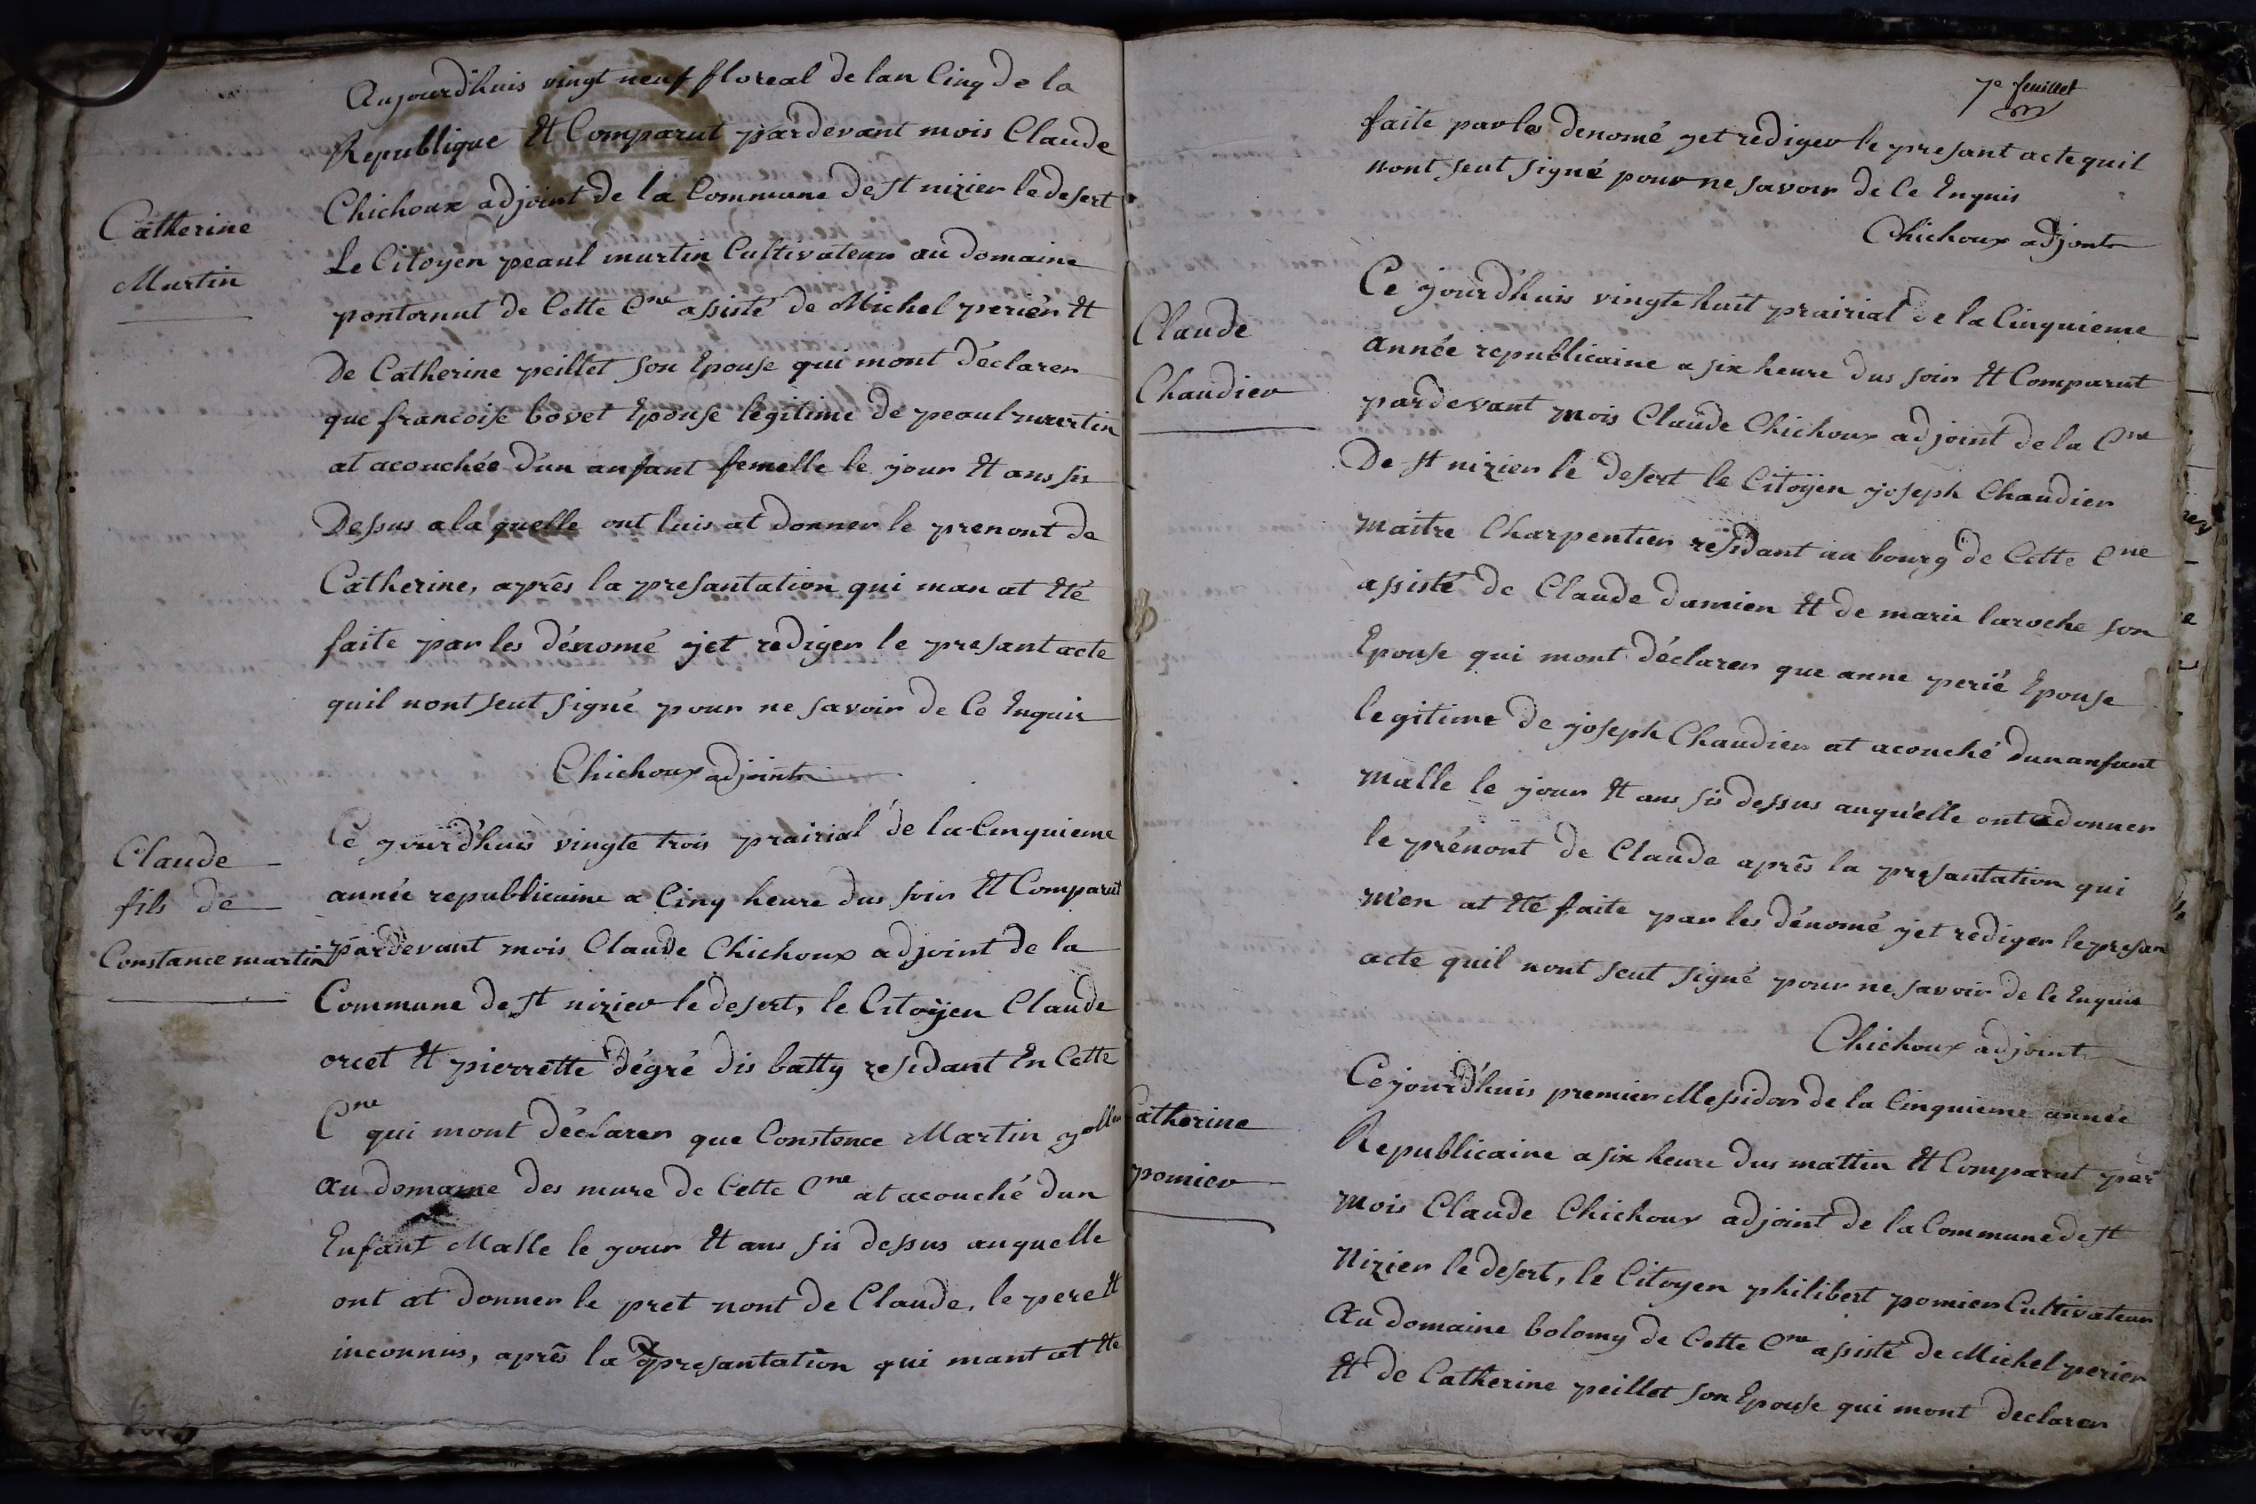 Aujourdhuis vingt neuf floreal de lan Cinq de la
Republique Et Comparut pardevant mois Claude
Chichoux adjoint de la Commune de st nizier le desert
Catherine
Martin
Le Citoyen peaul martin Cultivateur au domaine
pontornut de Cette Cne assisté de Michel perier Et
De Catherine peillet son Epouse qui mont déclarer
que francoise bovet Epouse legitime de peaul martin
at acouchée d'un anfant femelle le jour Et ans sis
Dessus a la quelle ont luis at donner le prenont de
Catherine, aprês la presantation qui man at Eté
faite par les dénomé jet rediger le presant acte
quil nont seut signé pour ne savoir de Ce Enquis
Chichoux adjoint
Claude
fils de
Constance martin
Ce jourd'huis vingte trois prairial de la Cinquieme
année republicaine a Cinq heure dus soir Et Comparut
pardevant mois Claude Chichoux adjoint de la
Commune de st nizier le desert, le Citoÿen Claude
orcet Et pierrette dégré dis batty residant En Cette
Cne qui mont déclarer que Constence Martin
au domaine des mure de Cette Cne at acouché dun
Enfant Malle le jour Et ans sis dessus auquelle
ont at donner le pret nont de Claude, le pere Et
inconnus, aprês la presantation qui mant at Ete
7e feuillet
faite par les denomé jet rediger le presant acte quil
nont seut signé pour ne savoir de Ce Enquis
Chichoux adjoint
Claude
Chaudier
Ce jourd'huis vingte huit prairial de la Cinquieme
année republicaine a six heure dus soir Et Comparut
pardevant mois Claude Chichoux adjoint de la Cne
De st nizier le desert le Citoÿen joseph Chaudier
maitre Charpentier residant au bourg de Cette Cne
assisté de Claude damien Et de marie laroche son
Epouse qui mont déclarer que anne perié Epouse
legitime de joseph Chaudier at acouché dun anfant
malle le jour Et ans sis dessus auquelle ont a donner
le prénont de Claude aprês la presantation qui
m'en at Eté faite par les dénomé jet rediger le presan
acte quil nont seut signé pour ne savoir de Ce Enquis
Chichoux adjoint
Catherine
pomier
Ce jourd'huis premier Messidor de la Cinquieme année
Republicaine a six heure dus mattin Et Comparut par
mois Claude Chichoux adjoint de la Commune de st
Nizier le desert, le Citoyen philibert pomier Cultivateur
Au domaine bolomy de Cette Cne assisté de Michel perier
Et de Catherine peillet son Epouse qui mont declarer